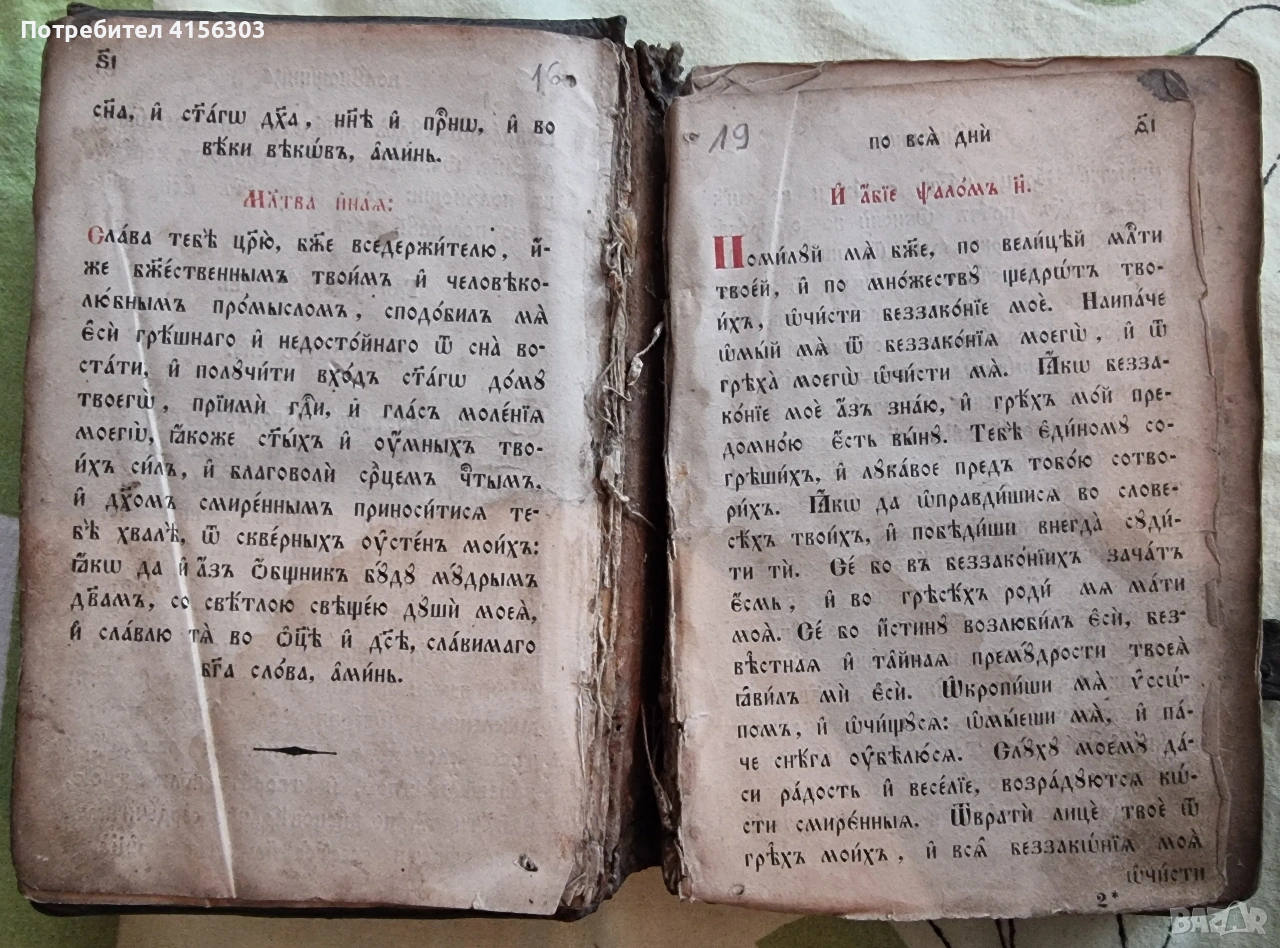 Потребител 4156303
ѕ҃і
16
сн҃а, и҆ ст҃а́гѡ дх҃а, нн҃ѣ и҆ прⷭ҇нѡ, и҆ во
вѣ́ки вѣкѡ́въ, а҆ми́нь.
Мл҃тва и҆на́ѧ:
Сла́ва тебѣ̀ цр҃ю̀, бж҃е вседержи́телю, и҆́-
же бж҃е́ственнымъ твои́мъ и҆ человѣко-
лю́бнымъ про́мысломъ, сподо́билъ мѧ̀
є҆сѝ грѣ́шнаго и҆ недосто́йнаго ѿ сна̀ во-
ста́ти, и҆ полꙋчи́ти вхо́дъ ст҃а́гѡ до́мꙋ
твоегѡ̀, прїимѝ гдⷭ҇и, и҆ гла́съ моле́нїѧ
моегѡ̀, ꙗ҆́коже ст҃ы́хъ и҆ ᲂу҆́мныхъ тво-
и́хъ си́лъ, и҆ благоволѝ срⷣцемъ чⷭ҇тымъ,
и҆ дх҃омъ смире́ннымъ приноси́тисѧ те-
бѣ̀ хвалѣ̀, ѿ скве́рныхъ ᲂу҆сте́нъ мои́хъ:
ꙗ҆́кѡ да и҆ а҆́зъ ѻ҆́бщникъ бꙋ́дꙋ мꙋ́дрымъ
дв҃амъ, со свѣ́тлою свѣще́ю дꙋшѝ моеѧ̀,
и҆ сла́влю тѧ̀ во ѻ҆ц҃ѣ̀ и҆ дс҃ѣ, сла́вимаго
бг҃а сло́ва, а҆ми́нь.
19
по всѧ̑ днѝ
д҃і
И҆ а҆́бїе ѱало́мъ н҃.
Поми́лꙋй мѧ̀ бж҃е, по вели́цѣй млⷭ҇ти
твое́й, и҆ по мно́жествꙋ щедро́тъ тво-
и́хъ, ѡ҆чи́сти беззако́нїе моѐ. Наипа́че
ѡ҆мы́й мѧ̀ ѿ беззако́нїѧ моегѡ̀, и҆ ѿ
грѣха̀ моегѡ̀ ѡ҆чи́сти мѧ̀. Ꙗ҆́кѡ безза-
ко́нїе моѐ а҆́зъ зна́ю, и҆ грѣ́хъ мо́й пре-
домно́ю є҆́сть вы́нꙋ. Тебѣ̀ є҆ди́номꙋ со-
грѣши́хъ, и҆ лꙋка́вое предъ тобо́ю сотво-
ри́хъ. Ꙗ҆́кѡ да ѡ҆правди́шисѧ во слове-
сѣ́хъ твои́хъ, и҆ побѣди́ши внегда̀ сꙋди́-
ти тѝ. Се́ бо въ беззако́нїихъ зача́тъ
є҆́смь, и҆ во грѣсѣ́хъ родѝ мѧ ма́ти
моѧ̀. Се́ бо и҆́стинꙋ возлюби́лъ є҆сѝ, без-
вѣ́стнаѧ и҆ та́йнаѧ премꙋ́дрости твоеѧ̀
ꙗ҆ви́лъ мѝ є҆сѝ. Ѡ҆кропи́ши мѧ̀ ѵ҆ссѡ́-
помъ, и҆ ѡ҆чи́щꙋсѧ: ѡ҆мы́еши мѧ̀, и҆ па́-
че снѣ́га ᲂу҆бѣлю́сѧ. Слꙋ́хꙋ моемꙋ̀ да́-
си ра́дость и҆ весе́лїе, возра́дꙋютсѧ кѡ́-
сти смире́нныѧ. Ѿвратѝ лицѐ твоѐ ѿ
грѣ̑хъ мои́хъ, и҆ всѧ̑ беззакѡ́нїѧ моѧ̀
ѡ҆чи́сти
2*
BAZAR